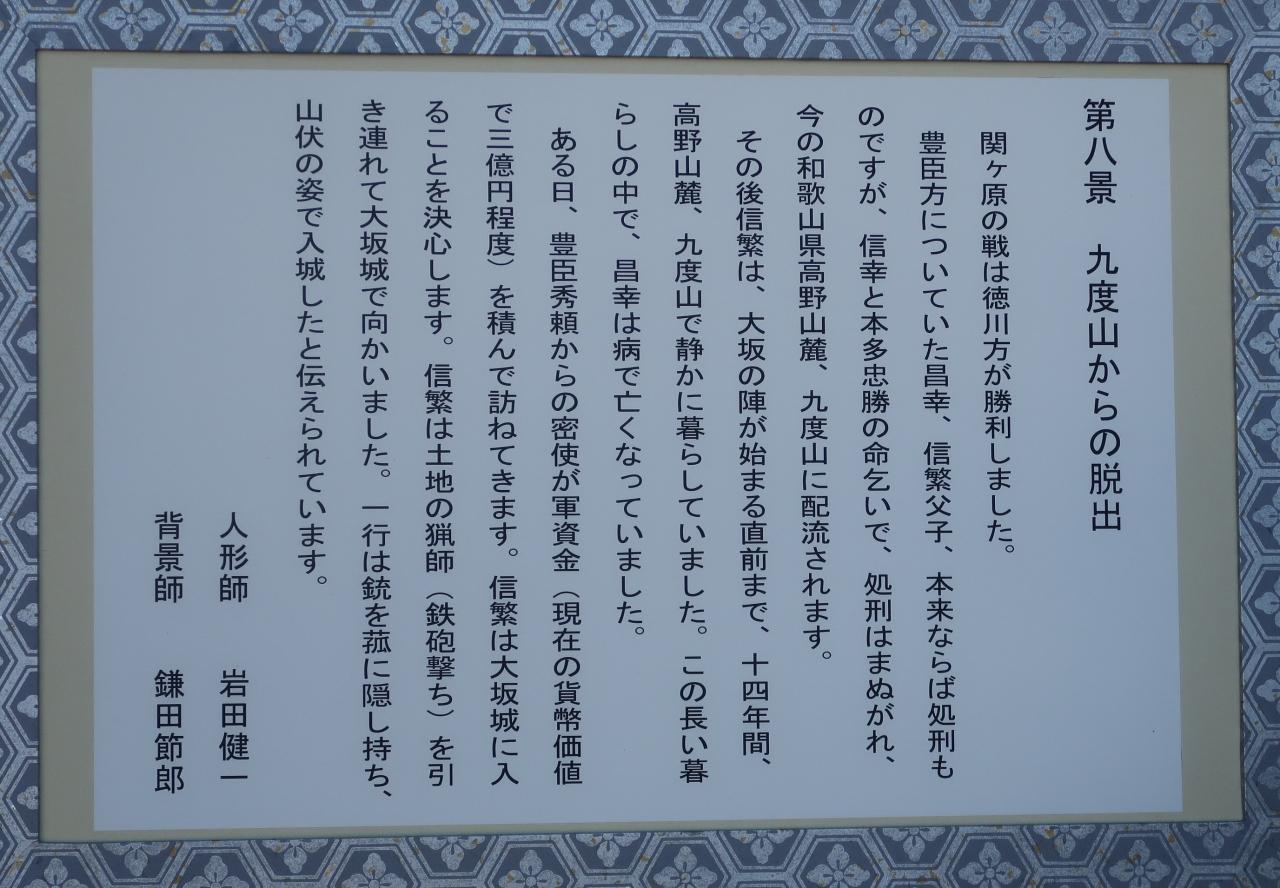 第八景　九度山からの脱出
関ヶ原の戦は徳川方が勝利しました。
豊臣方についていた昌幸、信繁父子、本来ならば処刑も
のですが、信幸と本多忠勝の命乞いで、処刑はまぬがれ、
今の和歌山県高野山麓、九度山に配流されます。
その後信繁は、大坂の陣が始まる直前まで、十四年間、
高野山麓、九度山で静かに暮らしていました。この長い暮
らしの中で、昌幸は病で亡くなっていました。
ある日、豊臣秀頼からの密使が軍資金（現在の貨幣価値
で三億円程度）を積んで訪ねてきます。信繁は大坂城に入
ることを決心します。信繁は土地の猟師（鉄砲撃ち）を引
き連れて大坂城で向かいました。一行は銃を菰に隠し持ち、
山伏の姿で入城したと伝えられています。
人形師　岩田健一
背景師　鎌田節郎